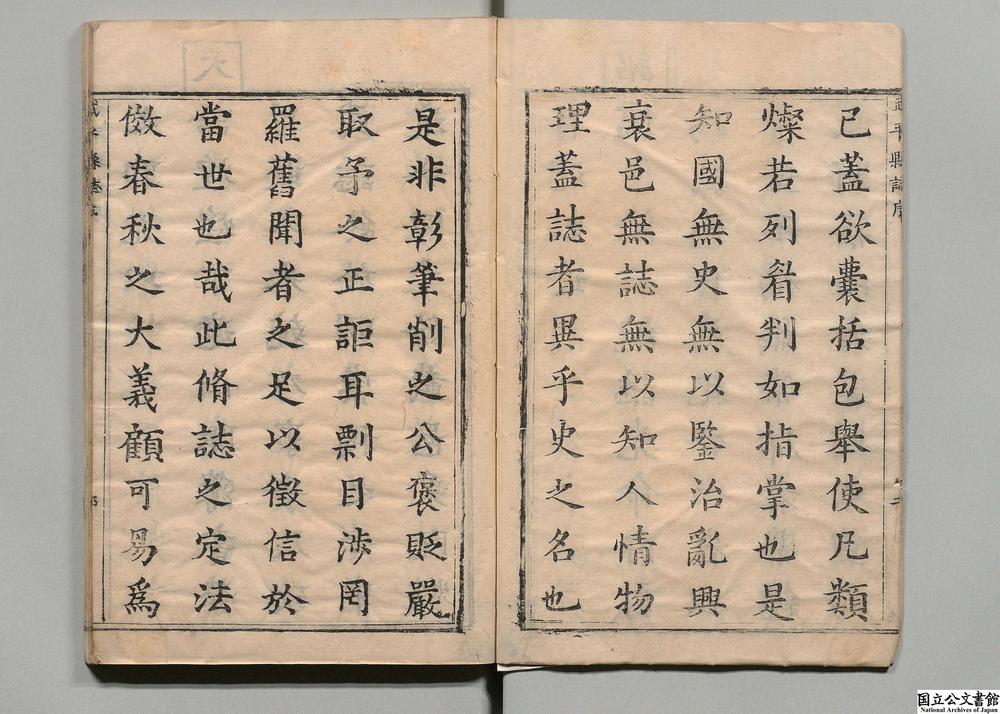 已蓋欲囊括包舉使凡類
燦若列眉判如指掌也是
知國無史無以鑒治亂興
衰邑無誌無以知人情物
理蓋誌者異乎史之名也
是非彰筆削之公褒貶嚴
取予之正詎耳剽目涉罔
羅舊聞者之足以徵信於
當世也哉此脩誌之定法
倣春秋之大義顧可易爲
武平縣誌序
天
国立公文書館
National Archives of Japan